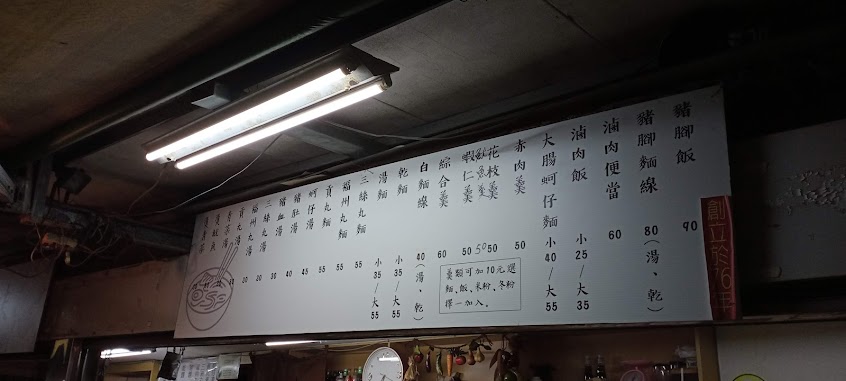 創立於76年
豬腳飯 90
豬腳麵線 80(湯、乾)
滷肉便當 60
滷肉飯 小25/大35
大腸蚵仔麵 小40/大55
赤肉羹 50
花枝羹 50
魷魚羹 50
蝦仁羹 50
綜合羹 60
白麵線 40(湯、乾)
乾麵 小35/大55
湯麵 小35/大55
三絲丸麵 55
福州丸麵 55
貢丸麵 55
蚵仔湯 45
豬肚湯 40
豬血湯 30
三絲丸湯 30
福州丸湯 30
貢丸湯 30
羹類可加10元選
麵、飯、米粉、冬粉
擇一加入。